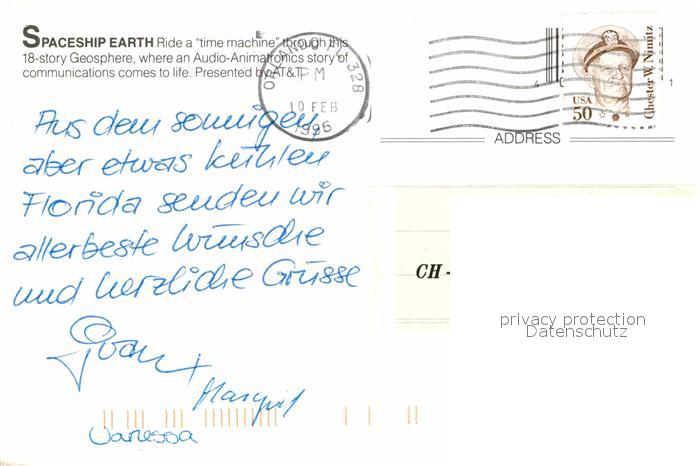 SPACESHIP EARTH Ride a "time machine" through this
18-story Geosphere, where an Audio-Animatronics story of
communications comes to life. Presented by AT&T.
ORLANDO, FL 328
PM
10 FEB
1996
USA
50
Chester W. Nimitz
1
ADDRESS
Aus dem sonnigen,
aber etwas kühlen
Florida senden wir
allerbeste Wünsche
und herzliche Grüsse
CH-
privacy protection
Datenschutz
Margrit
Vanessa